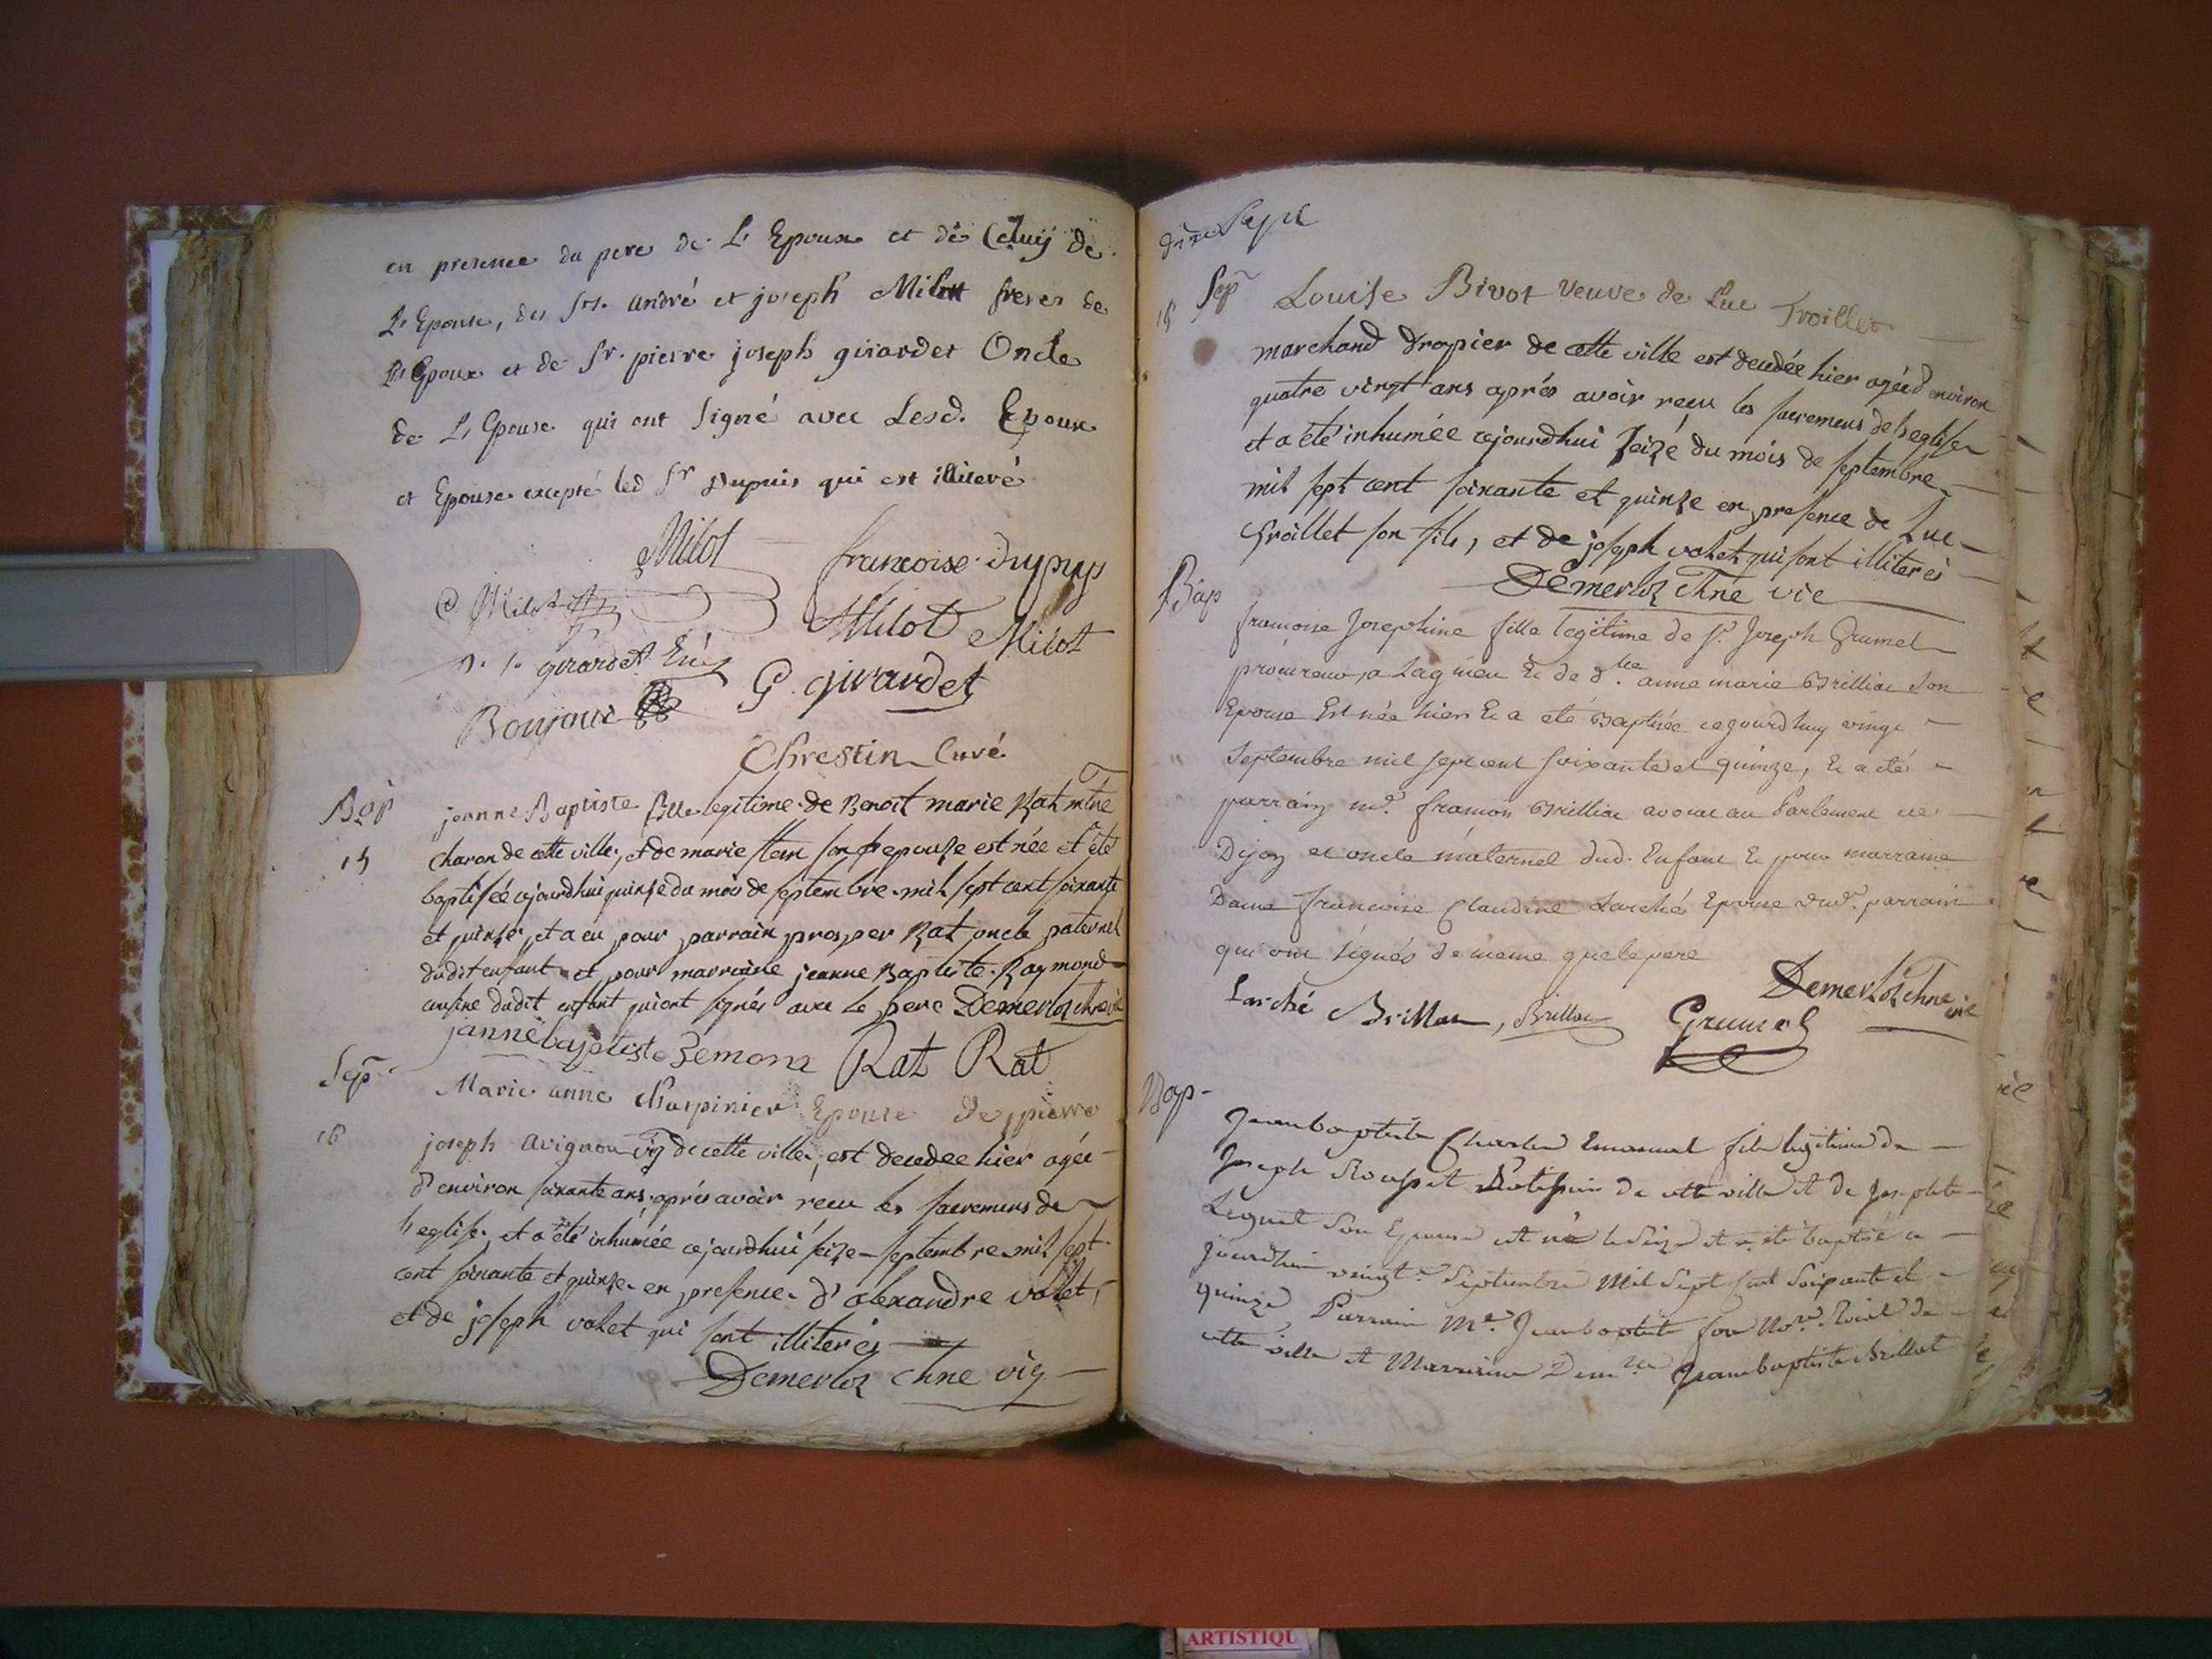 en presence du pere de L'Epoux et de Celuy de
L'Epouse, des srs. andré et joseph Milot freres de
L'Epoux et de sr. pierre joseph girardet Oncle
de L'Epouse qui ont signé avec Lesd. Epoux
et Epouse excepté led sr Dupuis qui est illiteré
Milot francoise dupuys
Milot AMilot Milot
girardet G. girardet
Bonjour
Chrestin Curé
Bap
15
jeanne Baptiste fille legitime de Benoit marie Rat mtre
charon de cette ville, et de marie son epouse est née et été
baptisée cejourdhui quinse du mois de septembre mil sept cent soixante
et quinse, et a eu pour parrain prosper Rat oncle paternel
dudit enfant et pour marraine jeanne Baptiste Raymond
cousine dudit enfant qui ont signés avec le pere Demerloz
janne baptiste Remona Rat Rat
Sep
16
Marie anne Charpinier Epouse de pierre
joseph avignon vig de cette ville, est decedee hier agée
d'environ soixante ans après avoir reçu les sacremens de
l'eglise, et a été inhumée cejourdhui seize septembre mil sept
cent soixante et quinse en presence d'alexandre volet,
et de joseph volet qui sont illiterés
Demerloz Chne vic
Sep
16
Louise Bivot veuve de Luc Troillet
marchand drapier de cette ville est decedée hier agée d'environ
quatre vingt ans après avoir reçu les sacremens de l'eglise
et a été inhumée cejourdhui seize du mois de septembre
mil sept cent soixante et quinse en presence de Luc
Troillet son fils, et de joseph volet qui sont illiterés
Demerloz Chne vic
Bap
francoise Josephine fille legitime de sr. Joseph Grumel
procureur a Lagnieu & de dlle anne marie Brillat son
Epouse Est née hier & a eté Baptisée cejourdhuy vingt
Septembre mil sept cent soixante et quinze, & a eté
parrain mr. francois Brillat avocat au Parlement de
Dijon et oncle maternel dud. Enfant & pour marraine
Dame francoise Claudine Larché Epouse dud. parrain
qui ont signés de meme que le pere
Demerloz Chne vic
Larché Brillat, Brillat Grumel
Bap
Jeanbaptiste Charles Emanuel fils legitime de
Joseph Rousset de cette ville et de Josephte
Leguat son Epouse est né le seize et a été baptisé ce
jourdhui vingt Septembre Mil Sept Cent Soixante et
quinze, Parrain Me. Jeanbaptiste Nore. Roial de
cette ville et Marraine Demlle Jeanbaptiste Brillat
ARTISTIQU